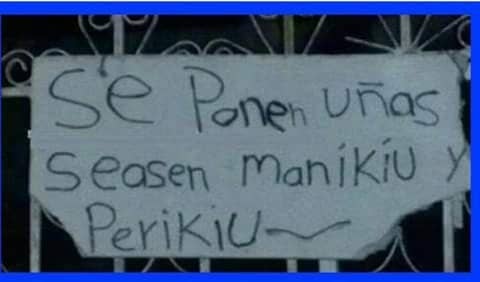 Se Ponen uñas
seasen manikiu y
Perikiu